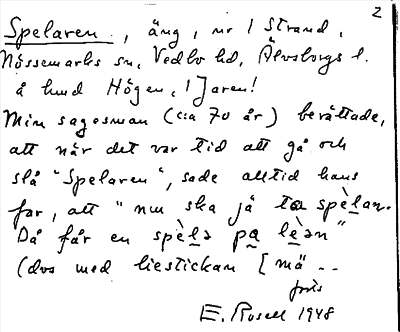 2
Spelaren, äng, nr 1 Strand,
Nössemarks sn, Vedbo hd, Älvsborgs l.
å lund Högen, 1 Jaren!
Min sagesman (c:a 70 år) berättade,
att när det var tid att gå och
slå "Spelaren", sade alltid hans
far, att "nu ska jå ta spèlan.
Då får en spèlə pa lèən"
(dvs med liestickan [mä ..
E. Rosell 1948